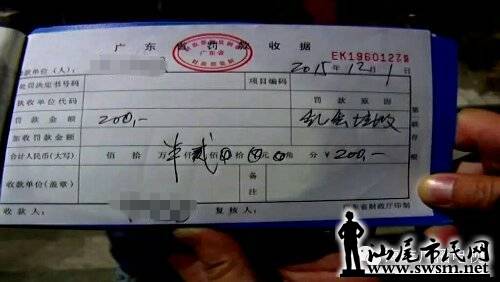 广东省罚款收据
EK19601278
缴款单位（人）：
2015年12月1日
处罚决定书号码
项目编码
执收单位代码
罚款原因
罚款金额
200,-
乱丢垃圾
加收罚款金额
合计人民币（大写） 佰 拾 万 仟 贰佰 0拾 0元 0角 分 ¥200,-
收款单位（盖章）
备注
收款人：
复核人：
广东省财政厅印制
汕尾市民网
www.swsm.net